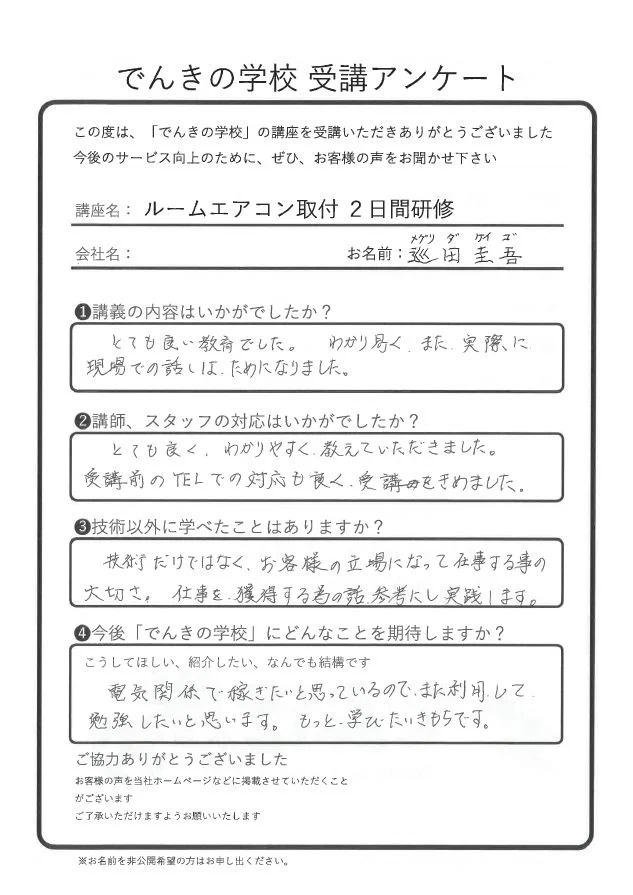 でんきの学校 受講アンケート
この度は、「でんきの学校」の講座を受講いただきありがとうございました
今後のサービス向上のために、ぜひ、お客様の声をお聞かせ下さい
講座名： ルームエアコン取付 2日間研修
メグリ ダ ケイ ゴ
会社名： お名前：巡田圭吾
❶講義の内容はいかがでしたか？
とても良い教育でした。 わかり易く、また、実際に
現場での話しは、ためになりました。
❷講師、スタッフの対応はいかがでしたか？
とても良く、わかりやすく、教えていただきました。
受講前のTELでの対応も良く、受講をきめました。
❸技術以外に学べたことはありますか？
技術だけではなく、お客様の立場になって仕事する事の
大切さ。 仕事を、獲得する為の話、参考にし実践します。
❹今後「でんきの学校」にどんなことを期待しますか？
こうしてほしい、紹介したい、なんでも結構です
電気関係で稼ぎたいと思っているので、また利用して、
勉強したいと思います。 もっと、学びたいきもちです。
ご協力ありがとうございました
お客様の声を当社ホームページなどに掲載させていただくこと
がございます
ご了承いただけますようお願いいたします
※お名前を非公開希望の方はお申し出ください。